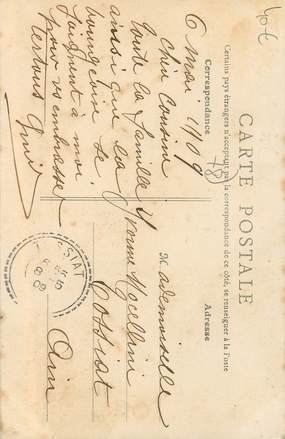 40 €
CARTE POSTALE
Certains pays étrangers n'acceptant pas la correspondance de ce côté, se renseigner à la Poste
Correspondance
Adresse
6 mai 1909
chère Cousine
toute la famille
ainsi que la
se
joignent a moi
pour vs embrasser
Mademoiselle
Yvonne
Cossiat
Ain
(78)
SIAT